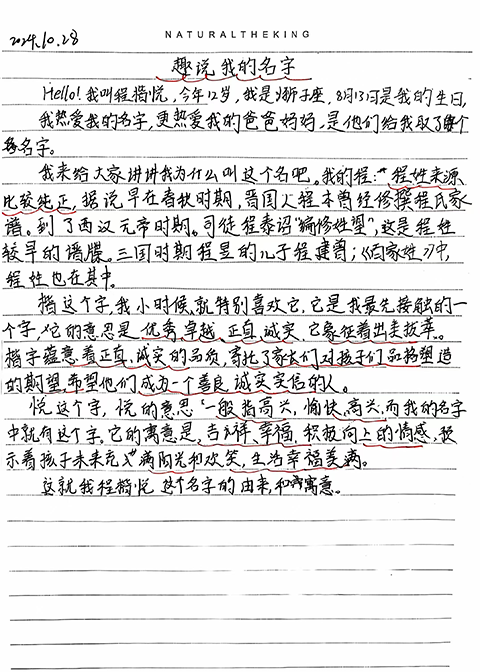 NATURALTHEKING
2024.10.28
趣说我的名字
Hello! 我叫程楷悦，今年12岁，我是狮子座，8月13日是我的生日，
我热爱我的名字，更热爱我的爸爸妈妈，是他们给我取了这个
名字。
我来给大家讲讲我为什么叫这个名吧。我的程：程姓来源
比较纯正，据说早在春秋时期，晋国人程本曾经修撰程氏家
谱。到了西汉元帝时期。司徒程泰诏“编修姓望”，这是程姓
较早的谱牒。三国时期程昱的儿子程 曾；《百家姓》中，
程姓也在其中。
楷这个字，我小时候就特别喜欢它，它是我最先接触的一
个字，它的意思是优秀、卓越、正直、诚实。它象征着出类拔萃。
楷字蕴意着正直、诚实的品质，寄托了家长们对孩子们品格塑造
的期望，希望他们成为一个善良、诚实守信的人。
悦这个字，悦的意思一般指高兴，愉快、高兴，而我的名字
中就有这个字。它的寓意是，吉祥、幸福，积极向上的情感，表
示着孩子未来充满阳光和欢笑，生活幸福美满。
这就我程楷悦这个名字的由来，和寓意。